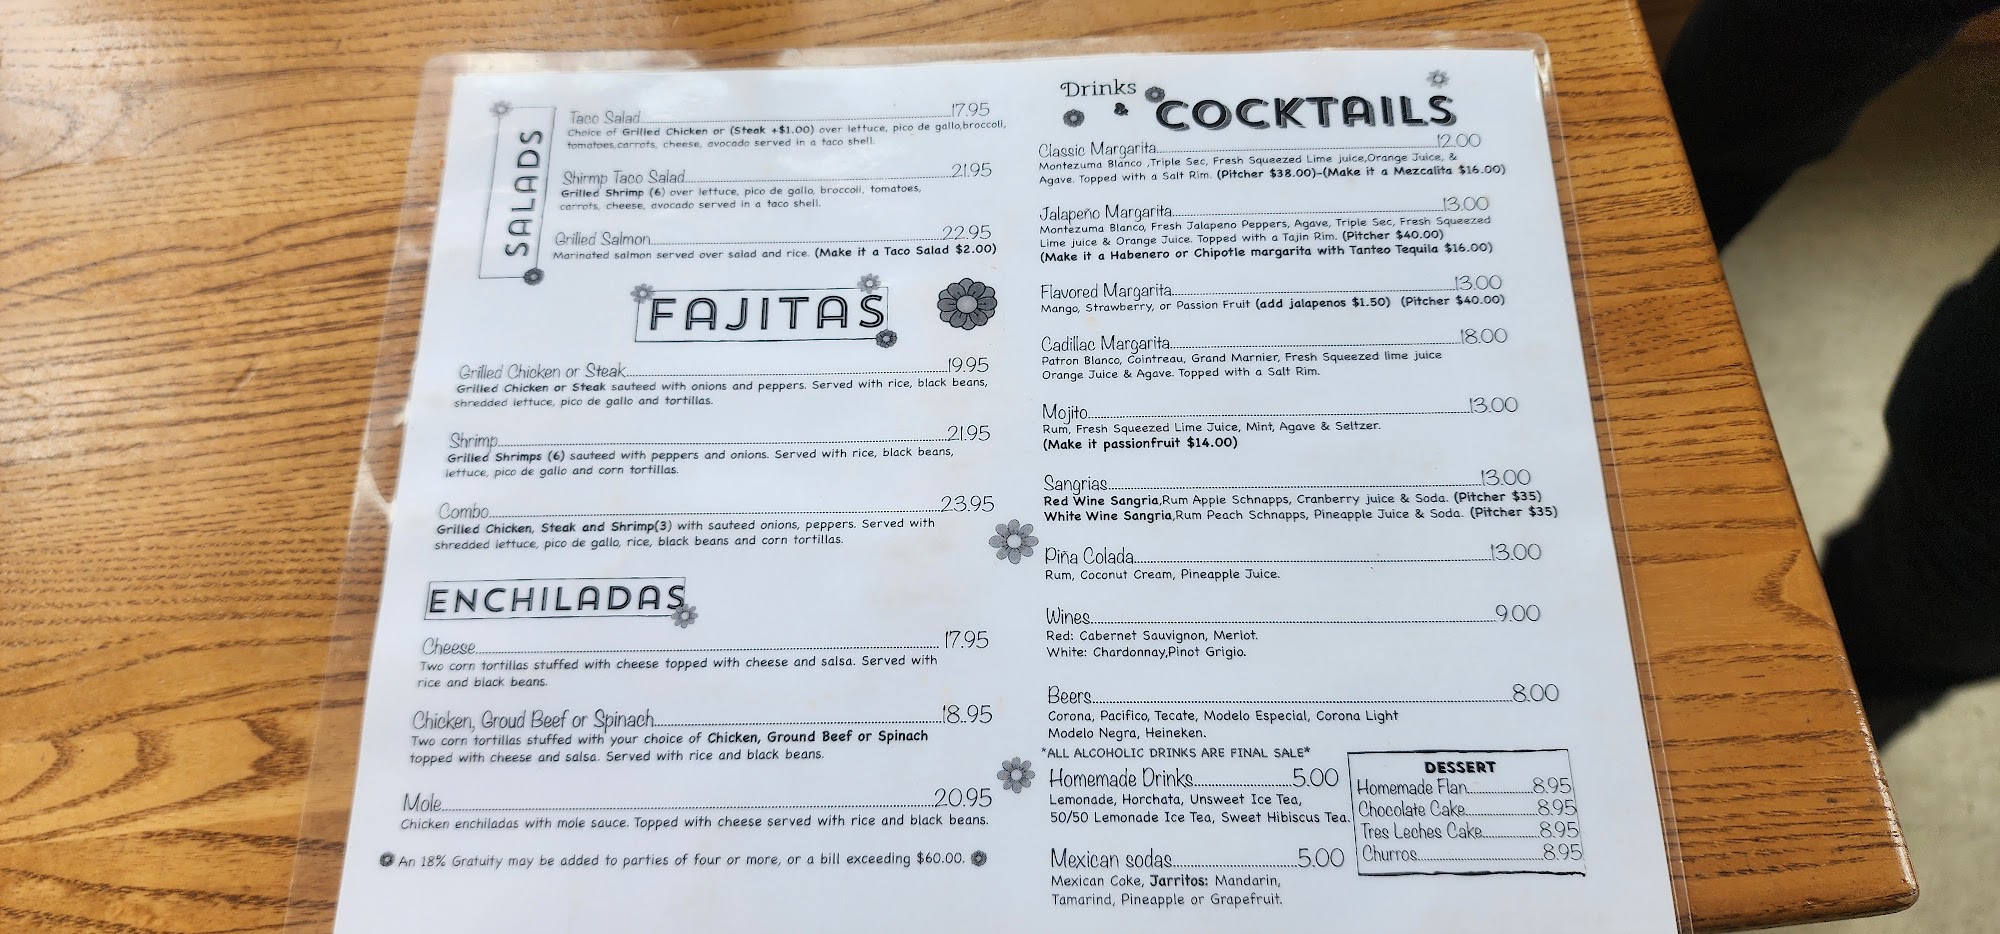 SALADS
Taco Salad 17.95
Choice of Grilled Chicken or (Steak +$1.00) over lettuce, pico de gallo,broccoli,
tomatoes,carrots, cheese, avocado served in a taco shell.
Shirmp Taco Salad 21.95
Grilled Shrimp (6) over lettuce, pico de gallo, broccoli, tomatoes,
carrots, cheese, avocado served in a taco shell.
Grilled Salmon 22.95
Marinated salmon served over salad and rice. (Make it a Taco Salad $2.00)
FAJITAS
Grilled Chicken or Steak 19.95
Grilled Chicken or Steak sauteed with onions and peppers. Served with rice, black beans,
shredded lettuce, pico de gallo and tortillas.
Shrimp 21.95
Grilled Shrimps (6) sauteed with peppers and onions. Served with rice, black beans,
lettuce, pico de gallo and corn tortillas.
Combo 23.95
Grilled Chicken, Steak and Shrimp(3) with sauteed onions, peppers. Served with
shredded lettuce, pico de gallo, rice, black beans and corn tortillas.
ENCHILADAS
Cheese 17.95
Two corn tortillas stuffed with cheese topped with cheese and salsa. Served with
rice and black beans.
Chicken, Groud Beef or Spinach 18.95
Two corn tortillas stuffed with your choice of Chicken, Ground Beef or Spinach
topped with cheese and salsa. Served with rice and black beans.
Mole 20.95
Chicken enchiladas with mole sauce. Topped with cheese served with rice and black beans.
An 18% Gratuity may be added to parties of four or more, or a bill exceeding $60.00.
Drinks
& COCKTAILS
Classic Margarita 12.00
Montezuma Blanco ,Triple Sec, Fresh Squeezed Lime juice,Orange Juice, &
Agave. Topped with a Salt Rim. (Pitcher $38.00)-(Make it a Mezcalita $16.00)
Jalapeño Margarita 13.00
Montezuma Blanco, Fresh Jalapeno Peppers, Agave, Triple Sec, Fresh Squeezed
Lime juice & Orange Juice. Topped with a Tajin Rim. (Pitcher $40.00)
(Make it a Habenero or Chipotle margarita with Tanteo Tequila $16.00)
Flavored Margarita 13.00
Mango, Strawberry, or Passion Fruit (add jalapenos $1.50) (Pitcher $40.00)
Cadillac Margarita 18.00
Patron Blanco, Cointreau, Grand Marnier, Fresh Squeezed lime juice
Orange Juice & Agave. Topped with a Salt Rim.
Mojito 13.00
Rum, Fresh Squeezed Lime Juice, Mint, Agave & Seltzer.
(Make it passionfruit $14.00)
Sangrias 13.00
Red Wine Sangria,Rum Apple Schnapps, Cranberry juice & Soda. (Pitcher $35)
White Wine Sangria,Rum Peach Schnapps, Pineapple Juice & Soda. (Pitcher $35)
Piña Colada 13.00
Rum, Coconut Cream, Pineapple Juice.
Wines 9.00
Red: Cabernet Sauvignon, Merlot.
White: Chardonnay,Pinot Grigio.
Beers 8.00
Corona, Pacifico, Tecate, Modelo Especial, Corona Light
Modelo Negra, Heineken.
*ALL ALCOHOLIC DRINKS ARE FINAL SALE*
Homemade Drinks 5.00
Lemonade, Horchata, Unsweet Ice Tea,
50/50 Lemonade Ice Tea, Sweet Hibiscus Tea.
Mexican sodas 5.00
Mexican Coke, Jarritos: Mandarin,
Tamarind, Pineapple or Grapefruit.
DESSERT
Homemade Flan 8.95
Chocolate Cake 8.95
Tres Leches Cake 8.95
Churros 8.95